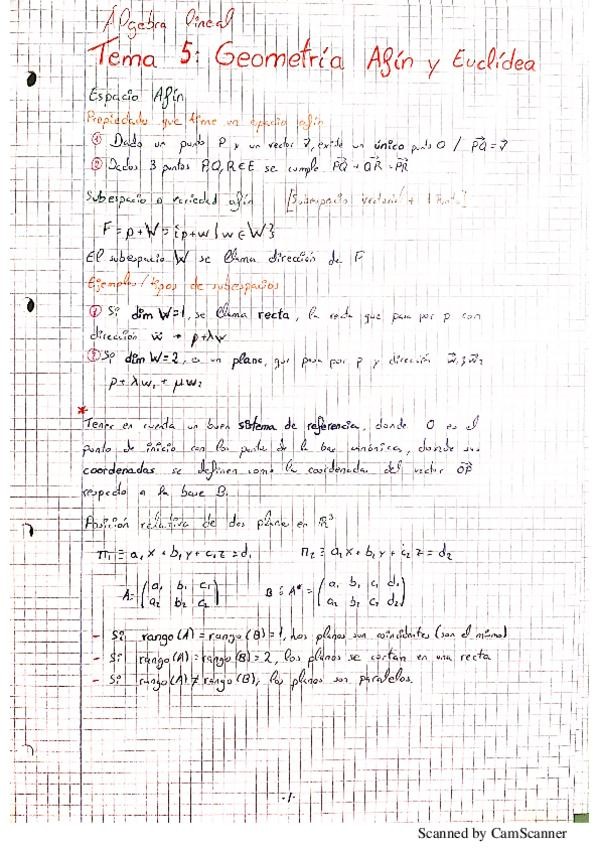 Álgebra lineal
Tema 5: Geometría Afín y Euclídea
Espacio Afín
Propiedades que tiene un espacio afín
① Dado un punto P y un vector v⃗, existe un único punto Q / PQ⃗ = v⃗
② Dados 3 puntos P,Q,R∈E se cumple PQ⃗ + QR⃗ = PR⃗
Subespacio o variedad afín [Subespacio vectorial + 1 Punto]
F = p+W = {p+w | w ∈ W}
El subespacio W se llama dirección de F
Ejemplos/tipos de subespacios
① Si dim W=1, se llama recta, la recta que pasa por p con
dirección w⃗ → p+λw
② Si dim W=2, es un plano, que pasa por p y dirección w⃗₁ y w⃗₂
p+λw₁ + μw₂
*
Tener en cuenta un buen sistema de referencia, donde O es el
punto de inicio con los puntos de la base canónica, donde sus
coordenadas se definen como la coordenada del vector OP⃗
respecto a la base B.
Posición relativa de dos plano en R³
Π₁ ≡ a₁x + b₁y + c₁z = d₁ Π₂ ≡ a₂x + b₂y + c₂z = d₂
A = (a₁ b₁ c₁ B ó A* = (a₁ b₁ c₁ d₁
a₂ b₂ c₂) a₂ b₂ c₂ d₂)
- Si rango(A) = rango(B) = 1, los planos son coincidentes (son el mismo)
- Si rango(A) = rango(B) = 2, los planos se cortan en una recta
- Si rango(A) ≠ rango(B), los planos son paralelos.
-1-
Scanned by CamScanner